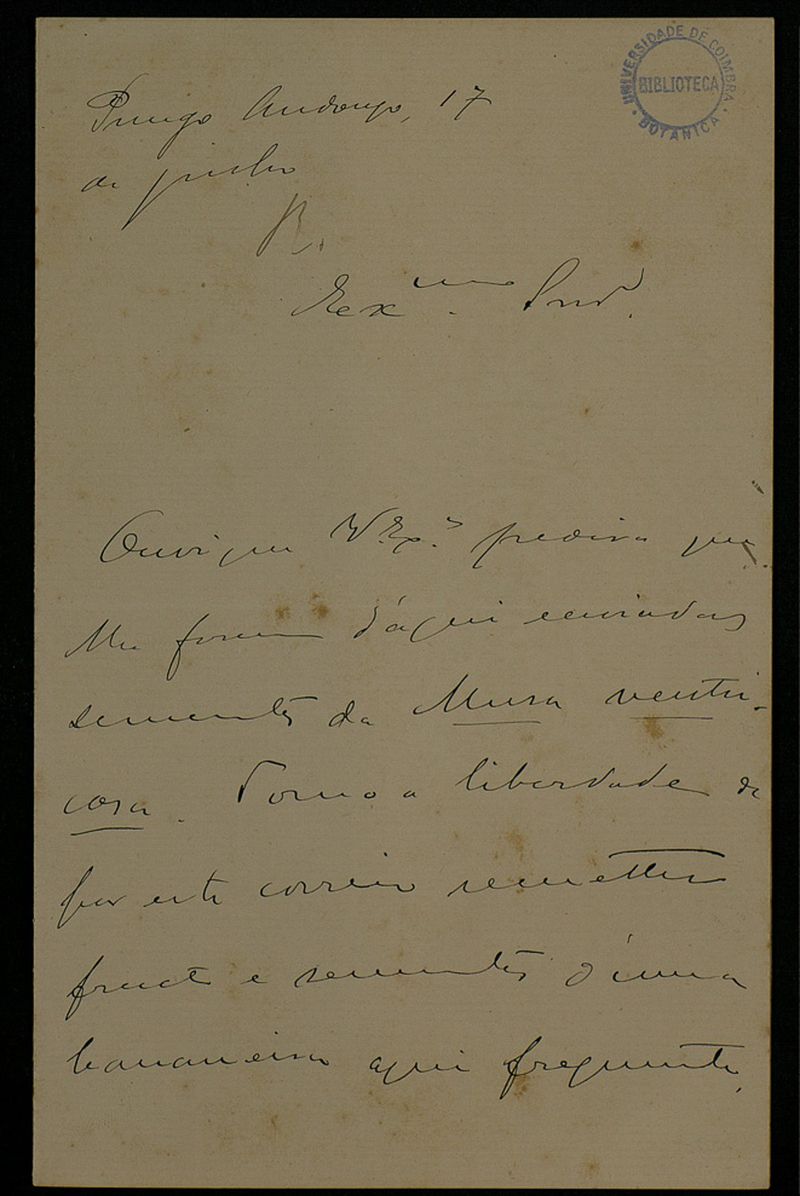 UNIVERSIDADE DE COIMBRA
BIBLIOTECA
BOTANICA
Pungo Andongo, 17
de julho
R.
Ex.mo Snr.
Ouvi que V. Ex.a pedira que
lhe foram d'aqui enviadas
sementes da Musa ventri-
cosa. Tomo a liberdade de
por este correio remetter
fruct e sementes d'uma
bananeira aqui frequente,